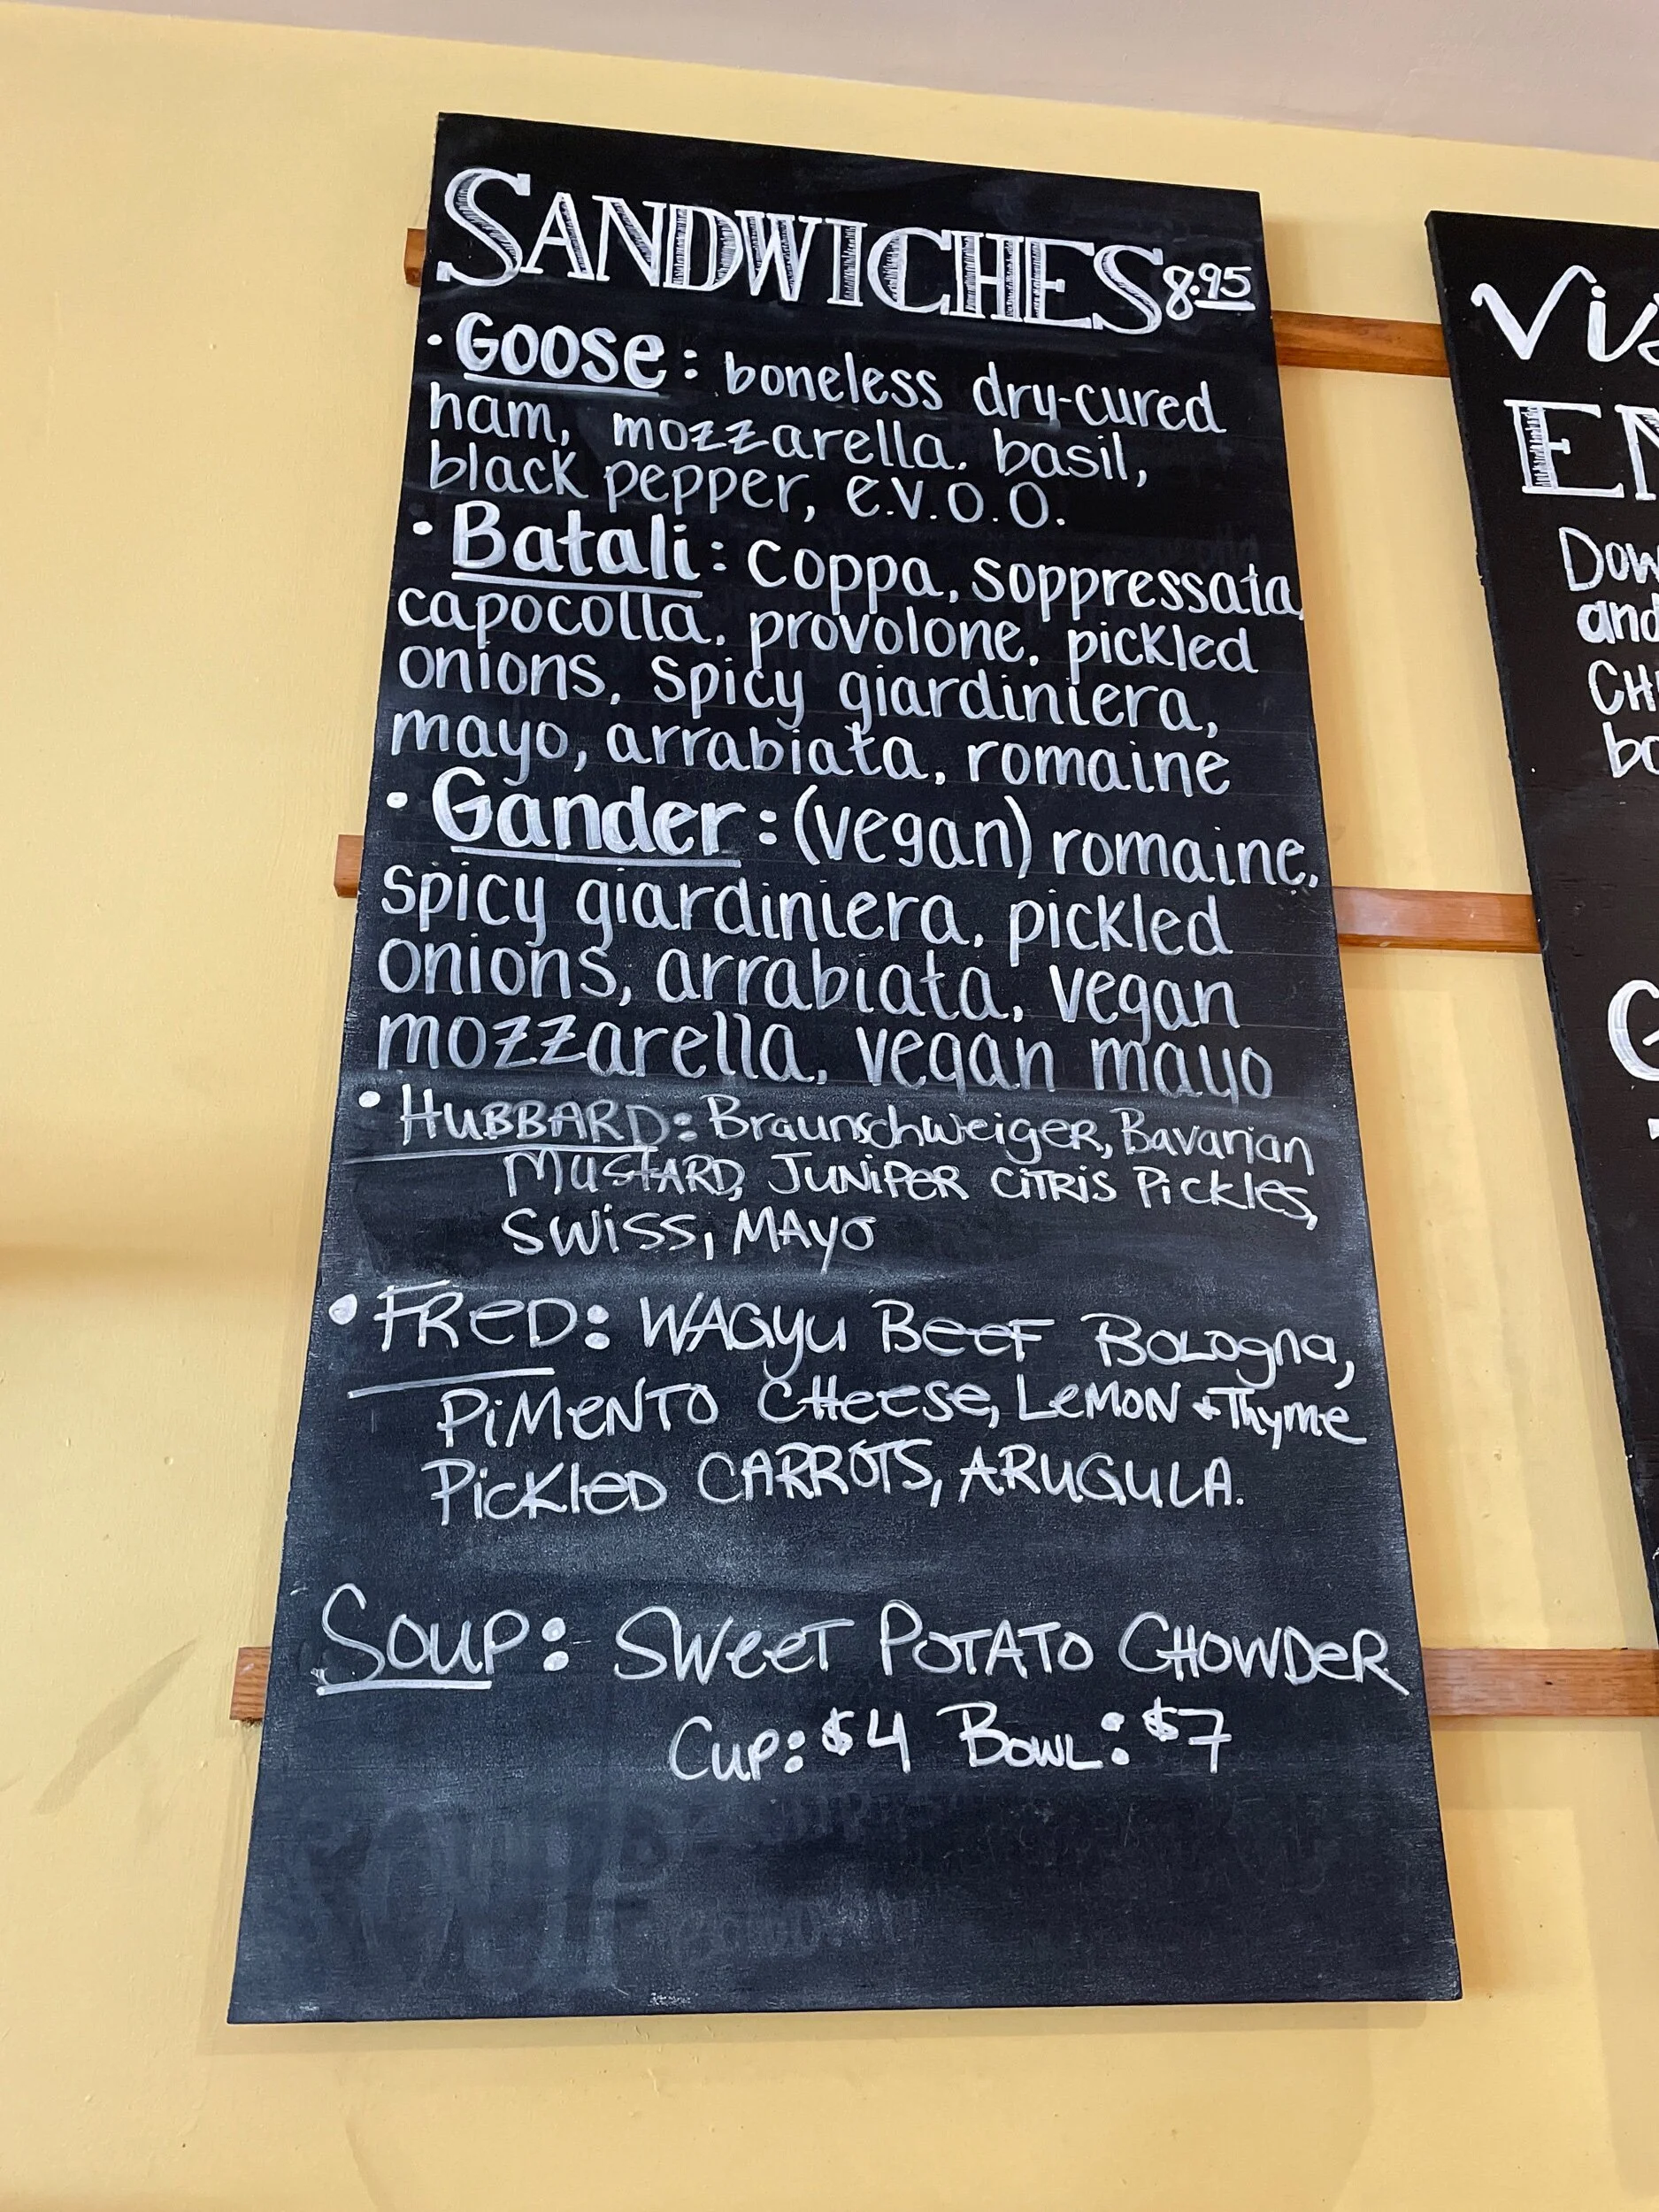 SANDWICHES 8.95
• Goose: boneless dry-cured
ham, mozzarella, basil,
black pepper, e.v.o.o.
• Batali: coppa, soppressata,
capocolla, provolone, pickled
onions, spicy giardiniera,
mayo, arrabiata, romaine
• Gander: (vegan) romaine,
spicy giardiniera, pickled
onions, arrabiata, vegan
mozzarella, vegan mayo
• HUBBARD: Braunschweiger, Bavarian
MUSTARD, JUNIPER CITRIS Pickles,
SWISS, MAYO
• FRED: WAGyu BeeF Bologna,
PIMENTO CHeese, LEMON + Thyme
Pickled CARROTS, ARUGULA.
SOUP: SWeeT POTATO CHOWDER
CUP: $4 BOWL: $7
Vis
EN
DOW
and
CH
bo
G